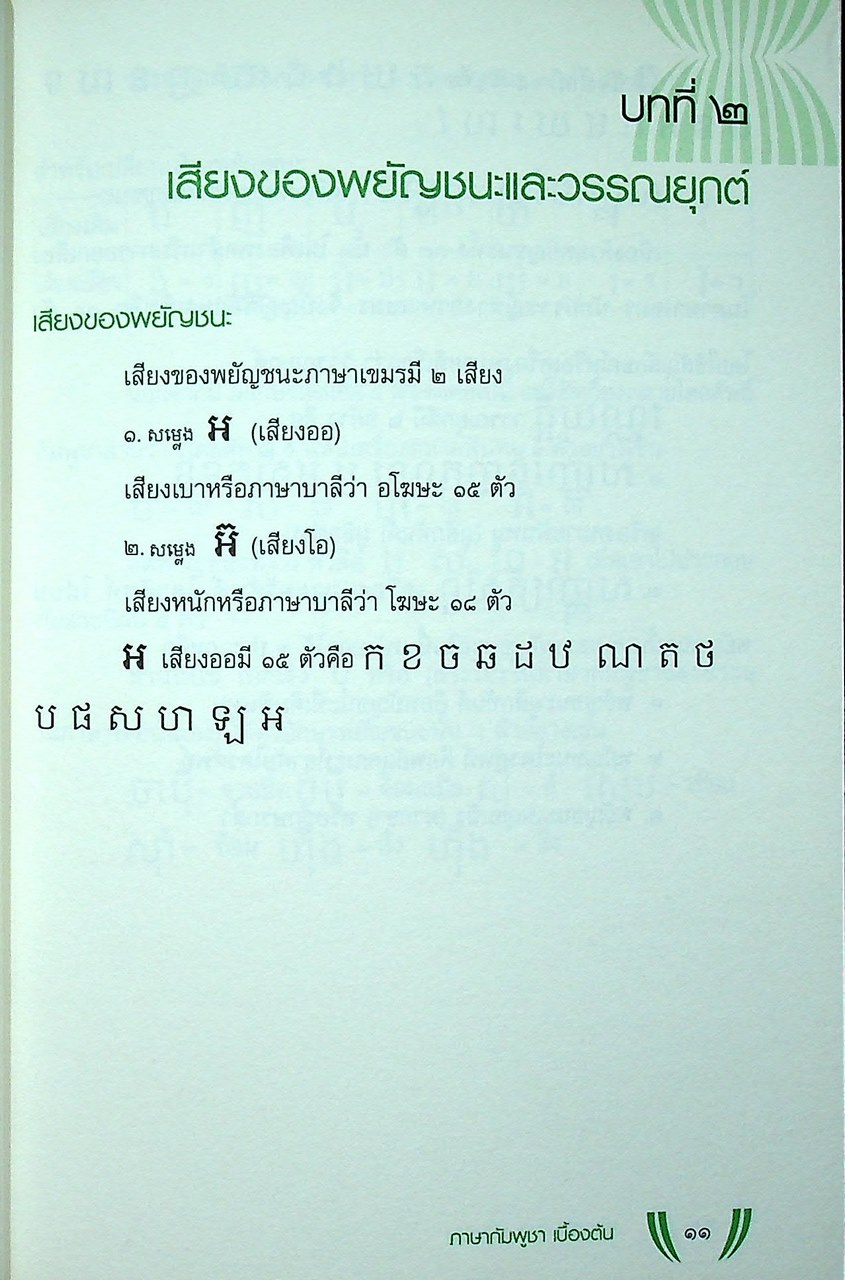 บทที่ ๒
เสียงของพยัญชนะและวรรณยุกต์
เสียงของพยัญชนะ
เสียงของพยัญชนะภาษาเขมรมี ๒ เสียง
๑. สมฺเลง อ (เสียงออ)
เสียงเบาหรือภาษาบาลีว่า อโฆษะ ๑๕ ตัว
๒. สมฺเลง อ๊ (เสียงโอ)
เสียงหนักหรือภาษาบาลีว่า โฆษะ ๑๘ ตัว
อ เสียงออมี ๑๕ ตัวคือ ก ข จ ฉ ด ฐ ณ ต ถ
ប ផ ស ហ ឡ អ
ภาษากัมพูชา เบื้องต้น ๑๑